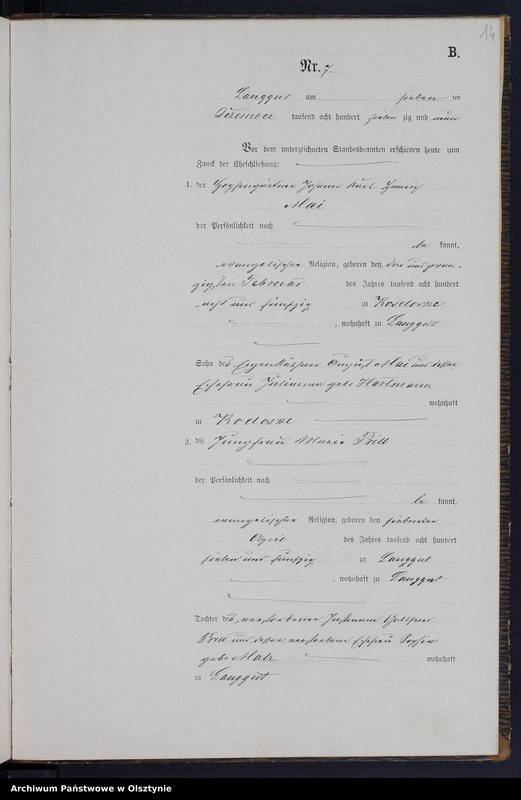 14
B.
Nr. 7.
Langgut am sieben ten
Dezember tausend acht hundert sieben zig und neun
Vor dem unterzeichneten Standesbeamten erschienen heute zum
Zweck der Eheschließung:
1. der Johann Karl Heinrich
Mai
der Persönlichkeit nach
be kannt,
evangelischer Religion, geboren den drei und zwan-
zigsten Februar des Jahres tausend acht hundert
acht und fünfzig zu
, wohnhaft zu Langgut
Sohn des Eigenkäthner August Mai und dessen
Ehefrau Julianna geb. Hartmann
wohnhaft
zu
2. die Jungfrau Marie Brill
der Persönlichkeit nach
be kannt,
evangelischer Religion, geboren den siebenten
April des Jahres tausend acht hundert
sieben und fünfzig zu Langgut
, wohnhaft zu Langgut
Tochter des verstorbenen Gottfried
Brill und dessen verstorbenen Ehefrau Sophie
geb.
wohnhaft
zu Langgut
Archiwum Państwowe w Olsztynie